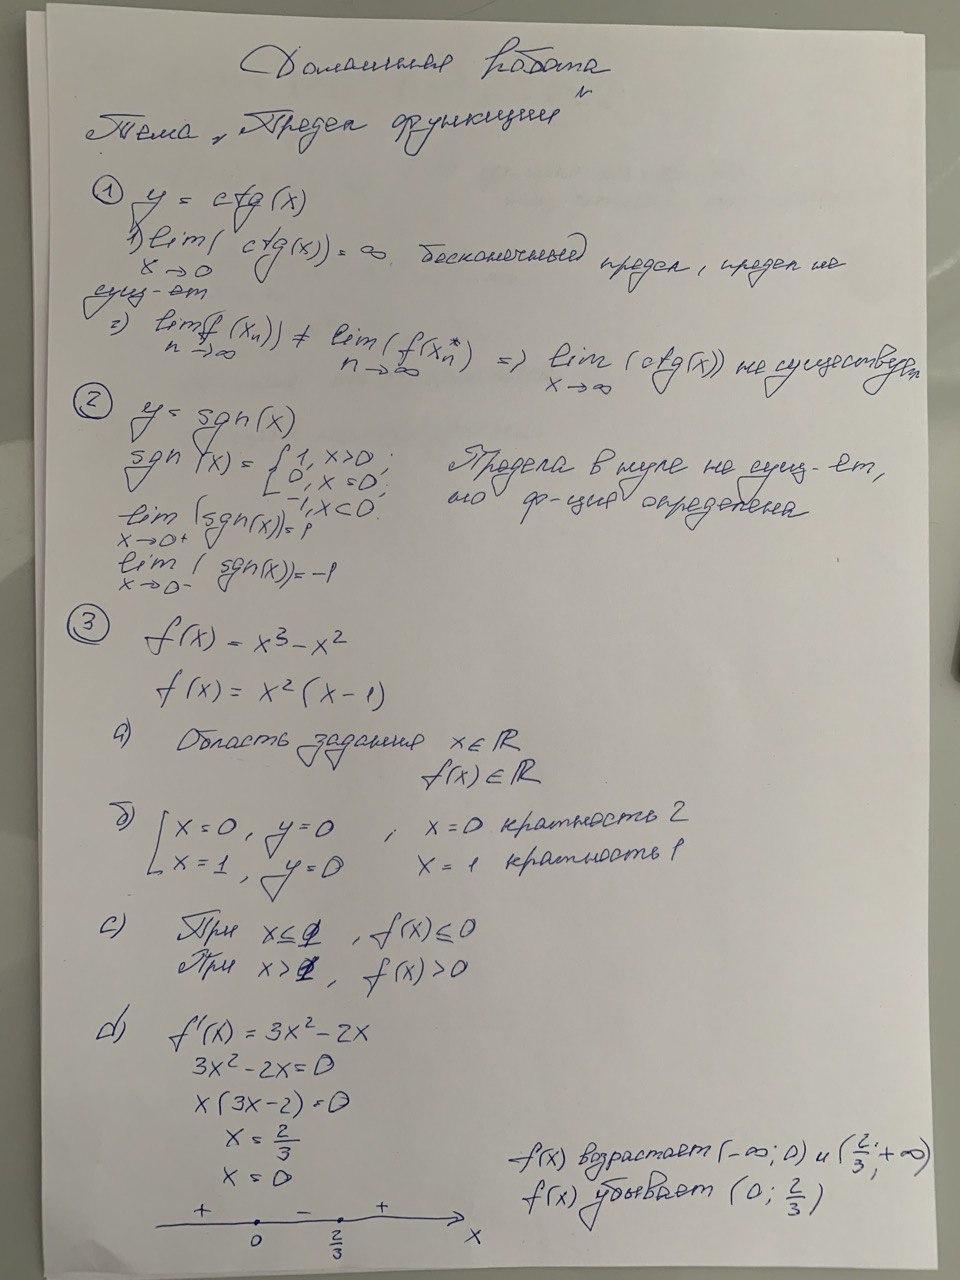 Домашняя работа
Тема „Предел функции"
① y = ctg(x)
1) lim( ctg(x)) = ∞ бесконечный предел, предел не
x→0
сущ-ет
2) lim(f(xₙ)) ≠ lim(f(xₙ*)) => lim (ctg(x)) не существует
n→∞ n→∞ x→∞
② y = sgn(x)
sgn (x) = { 1, x>0;
0, x=0;
-1, x<0.
Предела в нуле не сущ-ет,
но ф-ция определена
lim (sgn(x))=1
x→0+
lim ( sgn(x))=-1
x→0-
③ f(x) = x³-x²
f(x) = x²(x-1)
а) Область задания x∈ℝ
f(x)∈ℝ
б) [ x=0, y=0 , x=0 кратность 2
x=1, y=0 x=1 кратность 1
c) При x≤1, f(x)≤0
При x>1, f(x)>0
d) f'(x) = 3x²-2x
3x²-2x=0
x(3x-2)=0
x = 2/3
x = 0
f(x) возрастает (-∞; 0) и (2/3; +∞)
f(x) убывает (0; 2/3)
+ - +
0 2/3 x